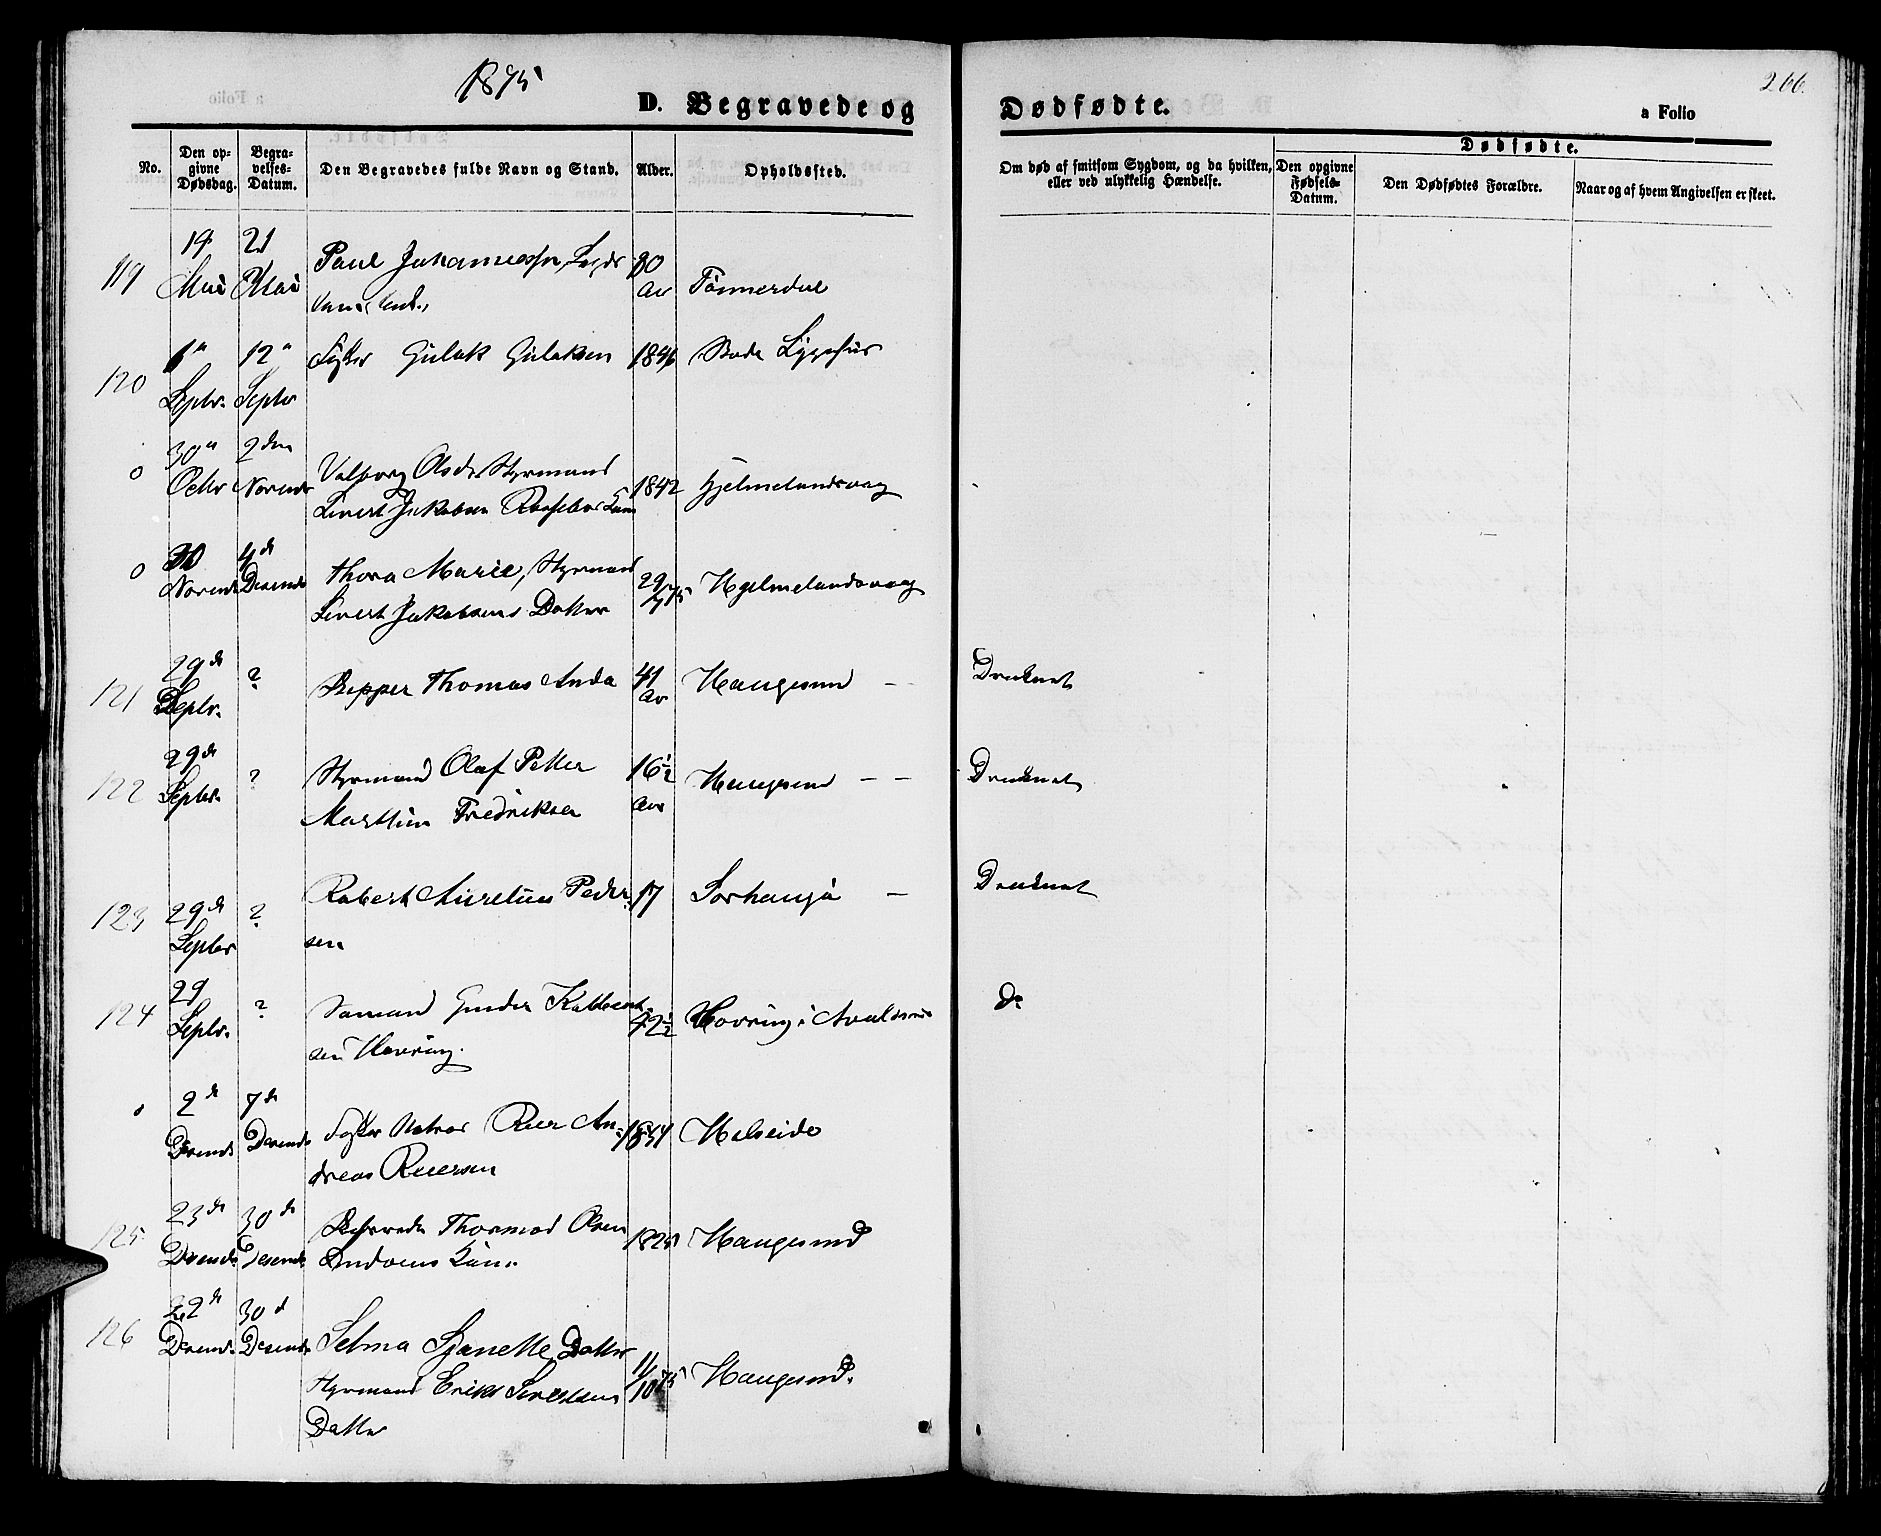 1875
266.
D. Begravede og Dødfødte.
a Folio
No.
Den op-
givne
Dødsdag.
Begra-
velses-
Datum.
Den Begravedes fulde Navn og Stand.
Alder.
Opholdssted.
Om død af smitsom Sygdom, og da hvilken,
eller ved ulykkelig Hændelse.
Dødfødte.
Den opgivne
Fødsels-
Datum.
Den Dødfødtes Forældre.
Naar og af hvem Angivelsen er skeet.
119 14 Mai 21 Mai Paul
80 Aar
120 6te Septbr. 12te Septbr Gulak Gulaksen 1846
o 30te Octbr 2den Novembr Valborg Olsdr Styrmand
Sivert Jakobsen Kone 1842 Hjelmelandsvaag
o 30 Novembr 4de Decembr Thora Marie, Styrmand
Sivert Jakobsens Datter 29/7 75 Hjelmelandsvaag
121 29de Septbr. ? Skipper Thomas Anda 41 Aar Haugesund — Druknet
122 29de Septbr. ? Styrmand Olaf Petter
Martin Fredriksen 16½ Aar Haugesund — — Druknet
123 29de Septbr ? Robert Aurelius Peder-
sen 17 Sørhaugø — Druknet
124 29 Septbr. ? Sømand
sen Høvring. 42½ Høvring i Avaldsnes do
o 2de Decembr 7de Decembr An-
dreas 1854
125 23de Decembr 30de Decembr Thormod Olsen
Kone. 1825 Haugesund
126 22de Decembr. 30d Decembr Selma Sjanette Datter
Styrmand Erik Sivertsen
Datter 11/10 75 Haugesund.